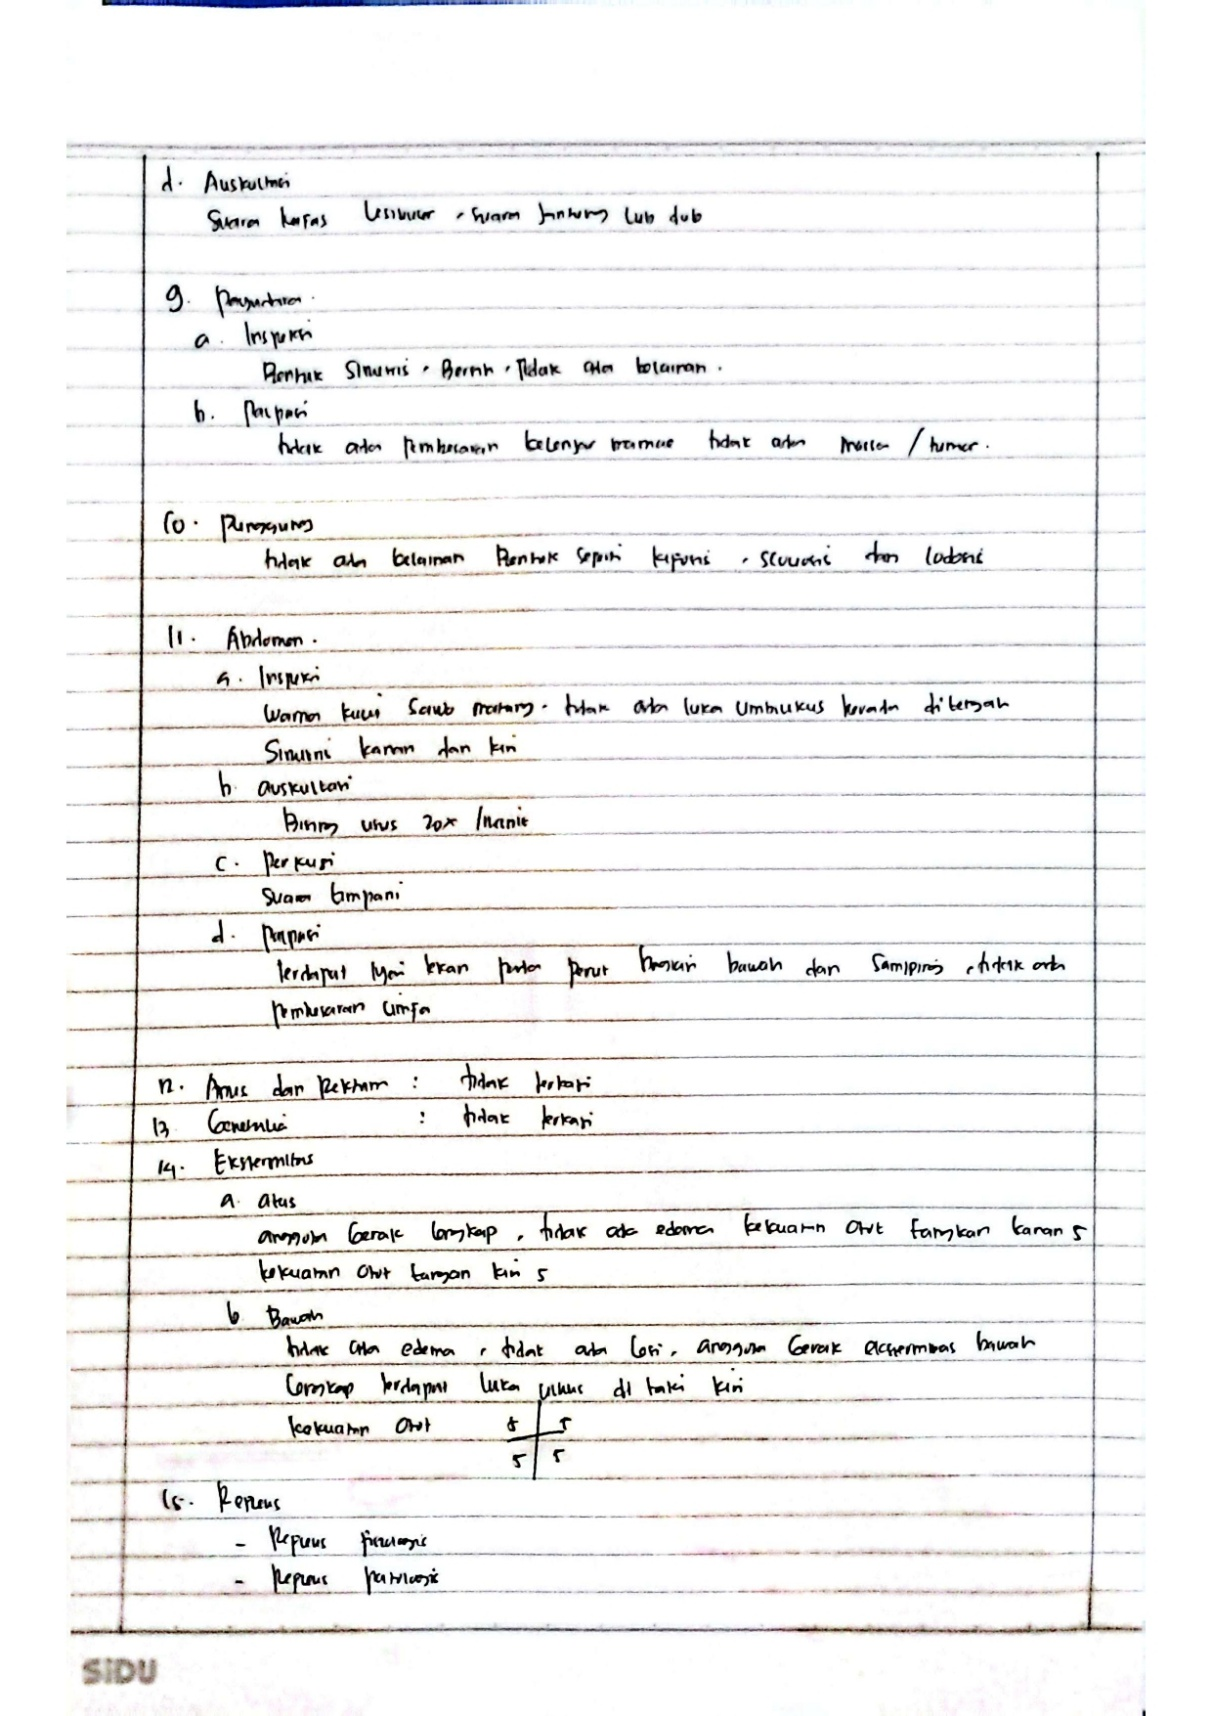 d. Auskultasi
Suara nafas Vesikuler, suara jantung lub dub
9. payudara.
a. Inspeksi
Bentuk Simetris, Bersih, Tidak ada kelainan.
b. Palpasi
tidak ada pembesaran kelenjar mamae tidak ada massa / tumor.
10. punggung
tidak ada kelainan Bentuk seperti kifosis, scoliosis dan lodosis
11. Abdomen.
a. Inspeksi
Warna kulit Sawo matang. tidak ada luka umbilikus berada ditengah
Simetris kanan dan kiri
b. auskultasi
Bising usus 20x /menit
c. Perkusi
Suara timpani
d. palpasi
terdapat nyeri tekan pada perut bagian bawah dan samping, tidak ada
pembesaran limfa
12. Anus dan Rektum : tidak terkaji
13. Genetalia : tidak terkaji
14. Ekstermitas
a. atas
anggota Gerak lengkap, tidak ada edema kekuatan Otot tangkan kanan 5
kekuatan Otot tangan kiri 5
b Bawah
tidak ada edema, tidak ada lesi, anggota Gerak ekstermitas bawah
lengkap terdapat luka ulkus di kaki kiri
kekuatan Otot 5 5
5 5
15. Refleks
- Refleks fisiologis
- Refleks patologis
SiDU